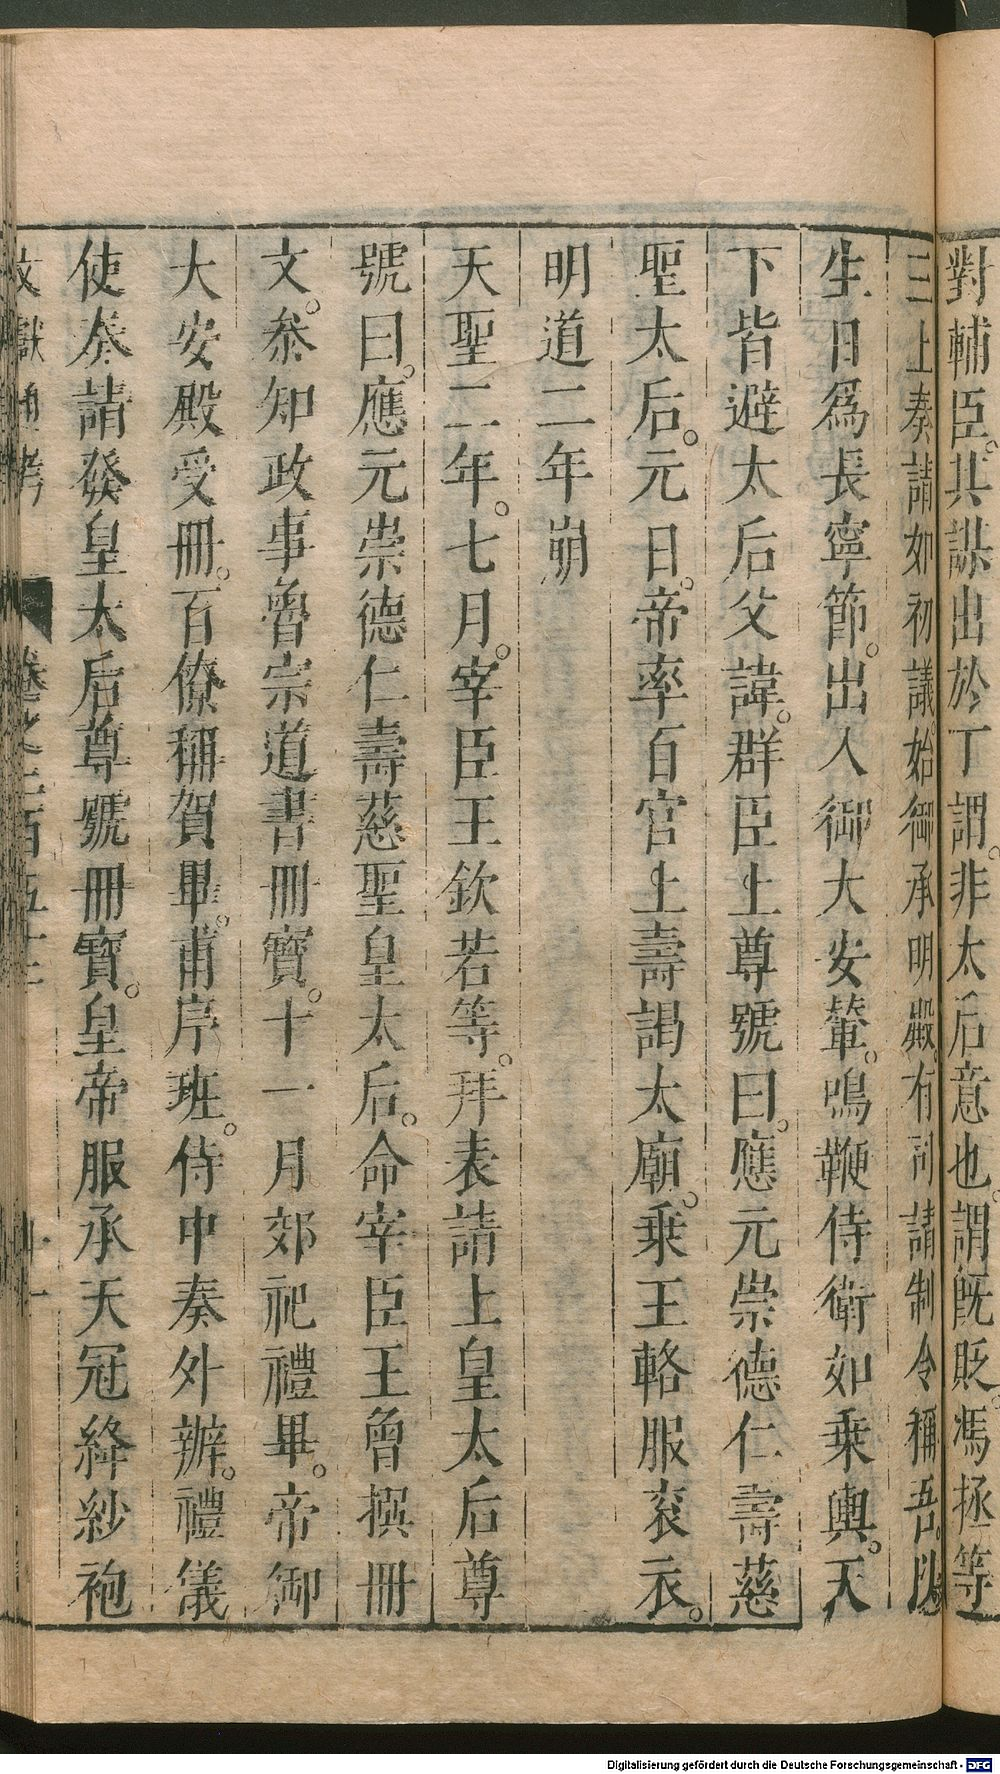 對輔臣。共謀出於丁謂。非太后意也。謂既貶。馮拯等
三上奏請如初議始御承明殿。有司請制令稱吾。以
生日爲長寧節。出入御大安輦。鳴鞭侍衛如乗輿。天
下皆避太后父諱。群臣上尊號曰。應元崇德仁壽慈
聖太后。元日。帝率百官上壽謁太廟。乗玉輅服衮衣。
明道二年崩
天聖二年。七月。宰臣王欽若等。拜表請上皇太后尊
號曰。應元崇德仁壽慈聖皇太后。命宰臣王曾撰冊
文。叅知政事魯宗道書冊寶。十一月郊祀禮畢。帝御
大安殿受冊。百僚稱賀畢。甫序班。侍中奏外辦。禮儀
使奏請發皇太后尊號冊寶。皇帝服承天冠絳紗袍
文獻通考 卷之二百五十二 十一
Digitalisierung gefördert durch die Deutsche Forschungsgemeinschaft - DFG